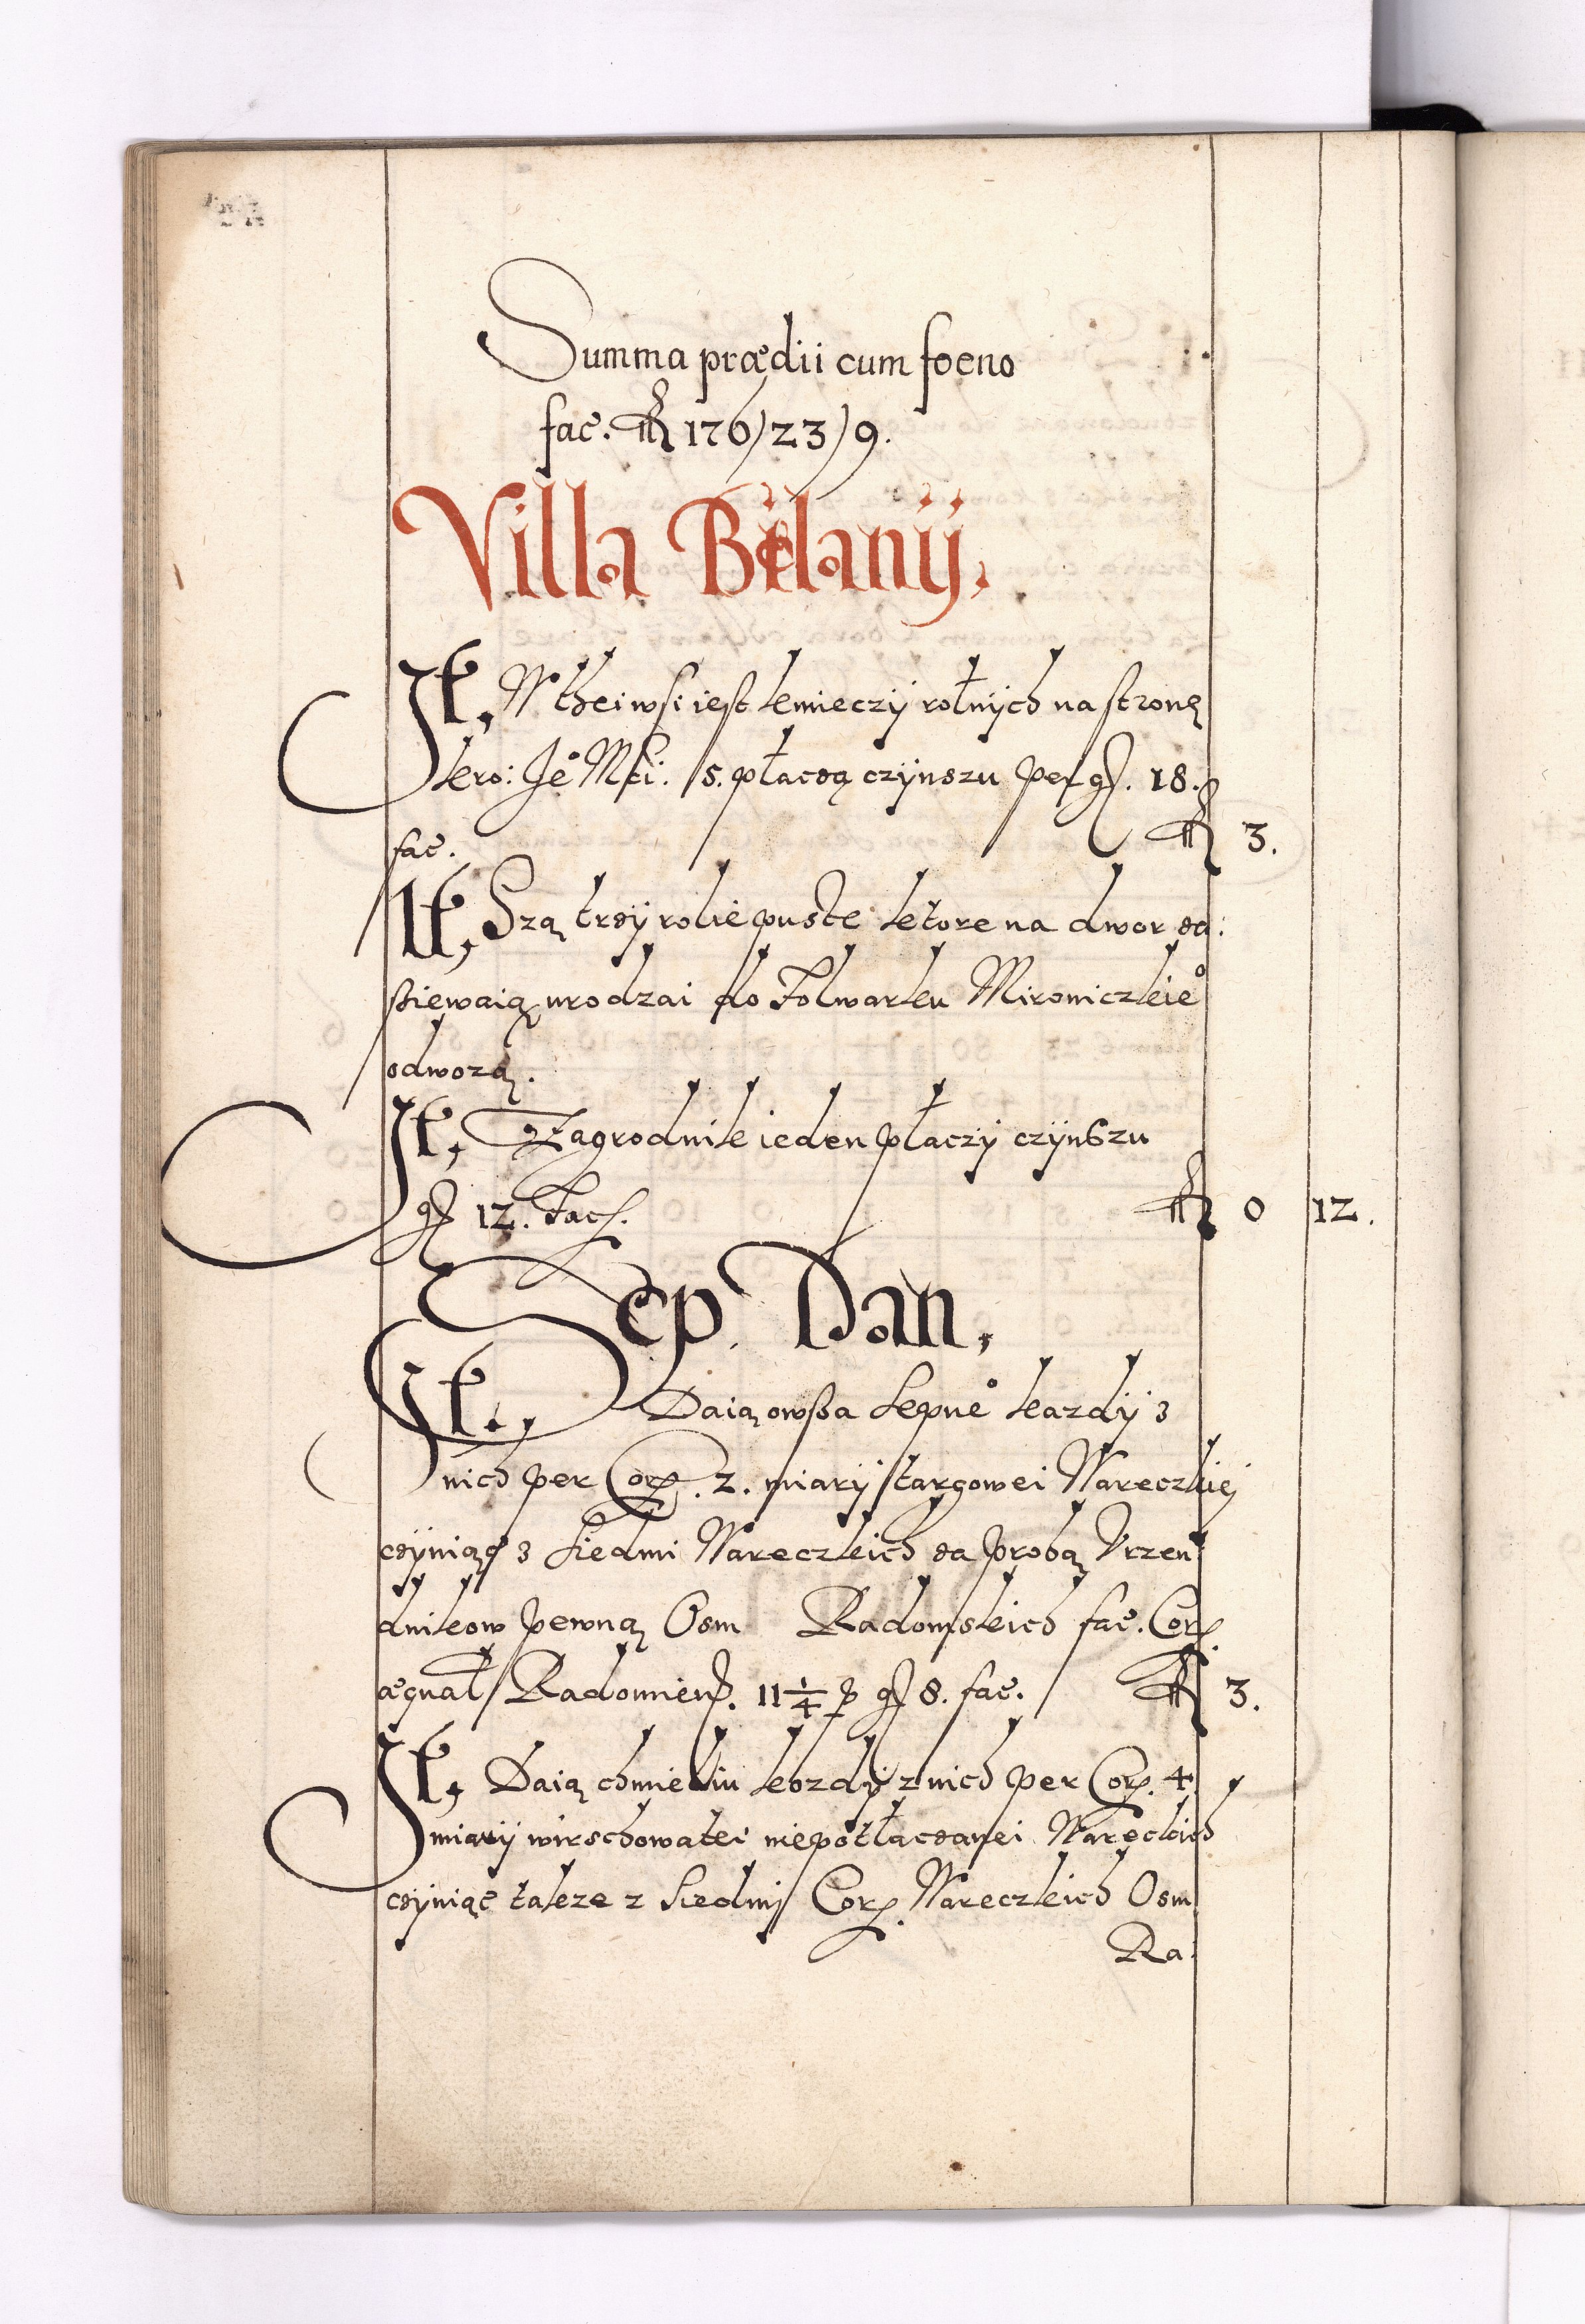 Summa prædii cum foeno
fac. fl 176/23/9.
Villa Bielanij.
It, W thei wsi iest kmieczÿ rolnÿch na stronę
kro: Je° Mći: 5. płaczą czÿnszu per gr. 18.
fac. fl 3.
It, Szą trzÿ rolie puste ktore na dwor za:
sziewaią urodzai do Folwarku Mironiczkie°
odwożą.
It, Zagrodnik ieden płaczÿ czÿnszu
gr 12. Fac. fl 0 12.
Sep. Dan,
It. Daią owsza sepne° kazdÿ z
nich per Corp. 2. miarÿ targowei Wareczkiej
czÿniąc z siedmi Wareczkich za probą Vrzen
dnikow pewną Osm Radomskich fac. Corp.
æqual Radomiens. 11 1/4 p gr 8. fac. fl 3.
It, Daią chmieliu kozdÿ z nich per Corp. 4.
miarÿ wirschowatei niepotłaczanei Wareckich
czÿniąc takze z siedmi Corp. Wareczkich Osm
Ra: